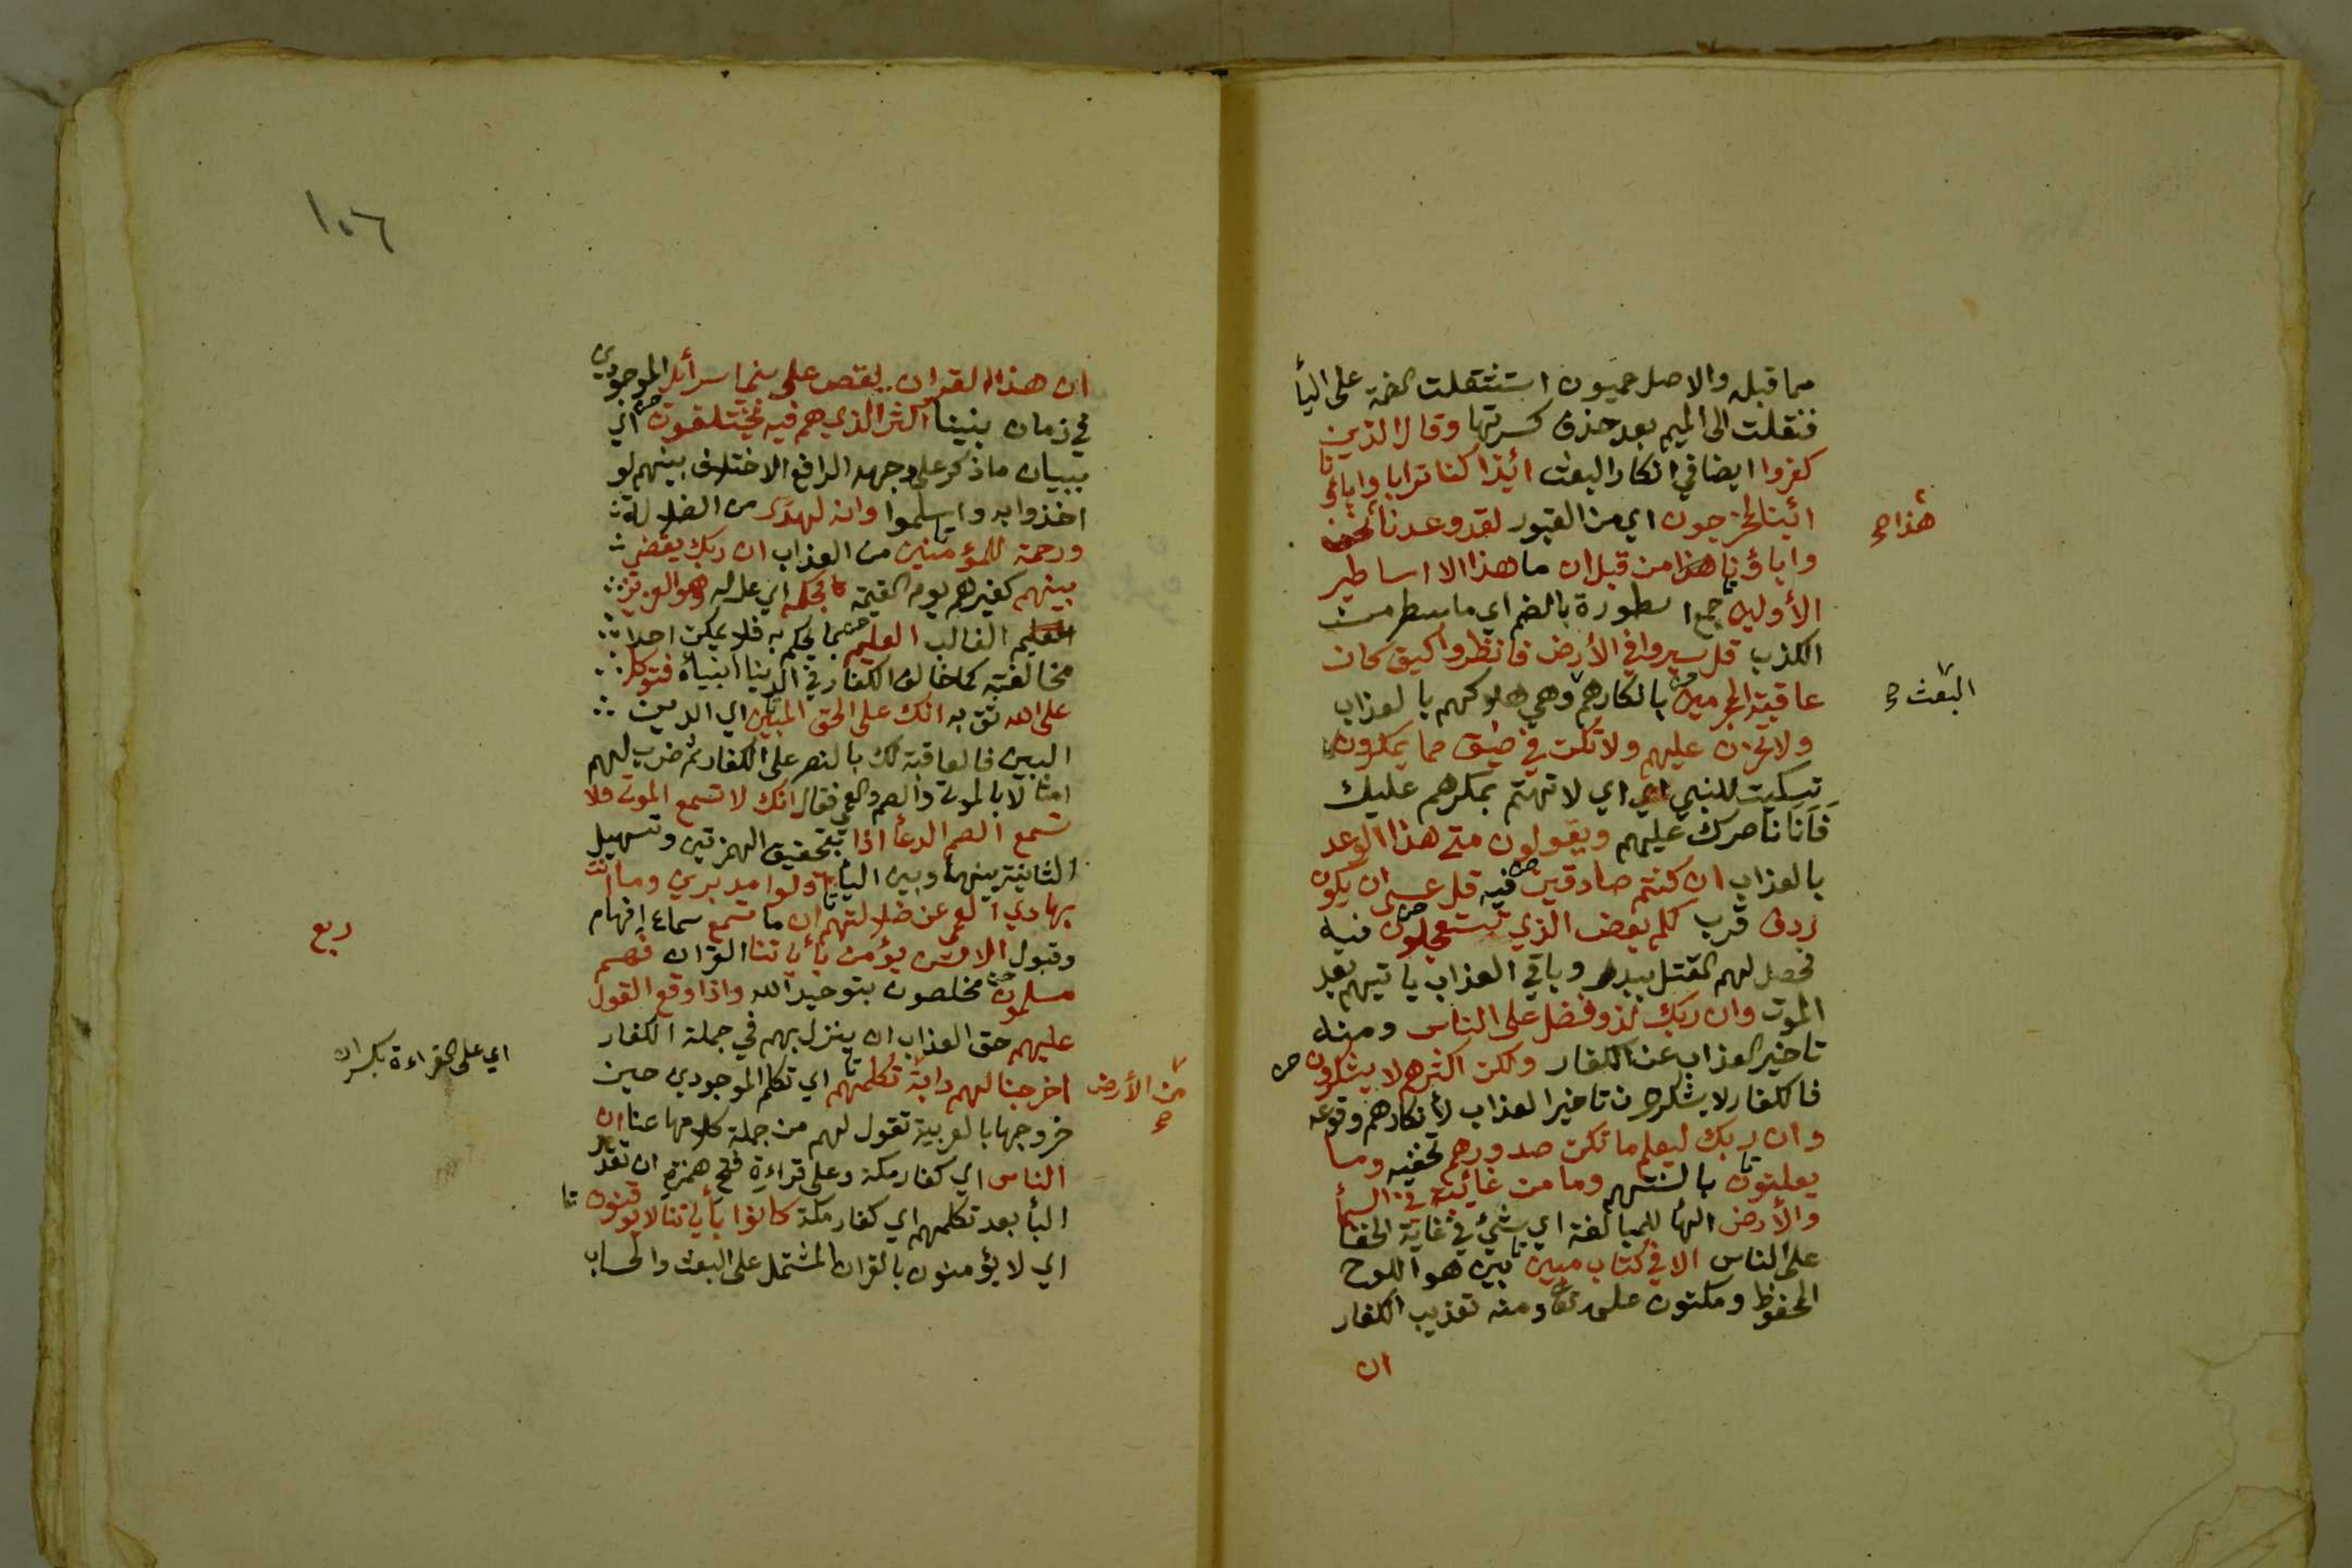 مما قبله والاصل عميون استثقلت الضمة على اليأ
فنقلت الى الميم بعد حذف كسرتها وقال الذين
كفروا ايضا في انكار البعث ائذا كنا ترابا واباؤنا
ائنا لمخرجون اي من القبور لقد وعدنا نحن
هذا صح
واباؤنا هذا من قبل ان ما هذا الا اساطير
الأولين جمع اسطورة بالضم اي ما سطر من
الكذب قل سيروا في الأرض فانظروا كيف كان
عاقبة المجرمين بانكارهم وهي هلاكهم بالعذاب
البعث صح
ولا تحزن عليهم ولا تكن في ضيق مما يمكرون
تسكيت للنبي اي لا تهتم بمكرهم عليك
فانا ناصرك عليهم ويقولون متى هذا الوعد
بالعذاب ان كنتم صادقين فيه قل عسى ان يكون
ردف قرب لكم بعض الذي تستعجلون فيه
فحصل لهم القتل ببدر وباقي العذاب ياتيهم بعد
الموت وان ربك لذو فضل على الناس ومنه
تاخير العذاب عن الكفار ولكن اكثرهم لا يشكرون
فالكفار لا يشكرون تاخير العذاب لأنكارهم وقوعه
وان ربك ليعلم ما تكن صدورهم تخفيه وما
يعلنون بالسنتهم وما من غائبة في السمأ
والأرض الهأ للمبالغة اي شئ في غاية الخفا
على الناس الا في كتاب مبين بين هو اللوح
المحفوظ ومكنون علمه تعا ومنه تعذيب الكفار
ان
١٠٦
ان هذا القران يقص على بني اسرأيل الموجودي
في زمان نبينا اكثر الذي هم فيه يختلفون اي
ببيان ما ذكر على وجهه الرافع الاختلاف بينهم لو
اخذوا به واسلموا وانه لهدى من الضلالة
ورحمة للمؤمنين من العذاب ان ربك يقضي
بينهم كغيرهم يوم القيمة بحكمه اي عدله وهو العزيز
الغالب العليم بما يحكم به فلا يمكن احدا
مخالفته كما خالف الكفار في الدنيا انبيأه فتوكل
على الله ثق به انك على الحق المبين اي الدين
البين فالعاقبة لك بالنصر على الكفار ثم ضرب لهم
امثالا بالموتى والصم والعمي فقال انك لا تسمع الموتى ولا
تسمع الصم الدعأ اذا بتحقيق الهمزتين وتسهيل
الثانية بينها وبين اليأ ولوا مدبرين وما انت
بهادي العمي عن ضلالتهم ان ما تسمع سماع إفهام
ربع
وقبول الا من يؤمن بأياتنا القران فهم
مسلمون مخلصون بتوحيد الله واذا وقع القول
عليهم حق العذاب ان ينزل بهم في جملة الكفار
اي على القراءة بكسر ان
اخرجنا لهم دابة تكلمهم اي تكلم الموجودي حين
من الأرض صح
خروجها بالعربية تقول لهم من جملة كلامها عنا ان
الناس اي كفار مكة وعلى قراءة فتح همزة ان تقدر
البأ بعد تكلمهم اي كفار مكة كانوا بأياتنا لا يوقنون
اي لا يؤمنون بالقران المشتمل على البعث والحساب